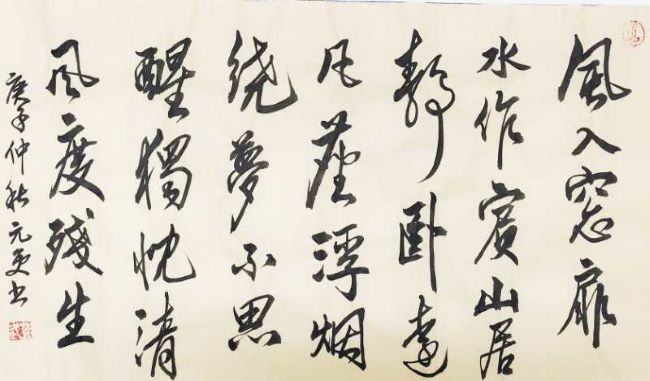 風入窓扉
水作賓山居
静卧遠
凡塵浮烟
绕夢不思
醒獨忱清
风度殘生
庚子仲秋元书